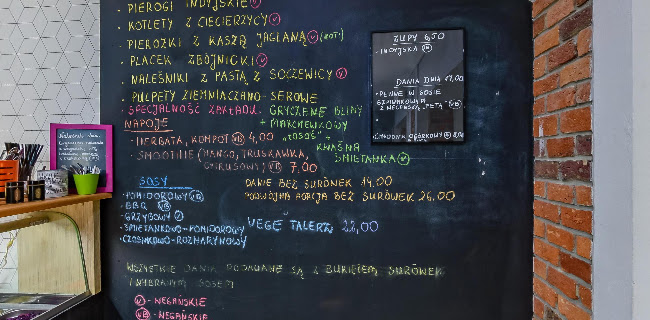 • PIEROGI INDYJSKIE (V)
• KOTLETY Z CIECIERZYCY (V)
• PIEROŻKI Z KASZĄ JAGLANĄ (V)
• PLACEK ZBÓJNICKI (V)
• NALEŚNIKI Z PASTĄ Z SOCZEWICY (V)
• PULPETY ZIEMNIACZANO-SEROWE
• SPECJALNOŚĆ ZAKŁADU: GRYCZANE BLINY
+ MARCHEWKOWY
"ŁOSOŚ" +
KWAŚNA
ŚMIETANKA (V)
NAPOJE
• HERBATA, KOMPOT (VB) 4,00
• SMOOTHIE (MANGO, TRUSKAWKA,
CYTRUSOWY) (VB) 7,00
SOSY
• POMIDOROWY (VB)
• BBQ (VB)
• GRZYBOWY (V)
• ŚMIETANKOWO-POMIDOROWY
• CZOSNKOWO-ROZMARYNOWY
DANIE BEZ SURÓWEK 14,00
PODWÓJNA PORCJA BEZ SURÓWEK 26,00
VEGE TALERZ 22,00
WSZYSTKIE DANIA PODAWANE SĄ Z BUKIETEM SURÓWEK
I WYBRANYM SOSEM
(V) - WEGAŃSKIE
(VB) - WEGAŃSKIE
ZUPY 6,50
• INDYJSKA (VB)
DANIA DNIA 17,00
SZPINAKOWYM